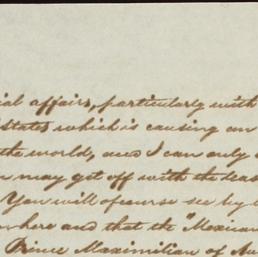 ial affairs, particularly with
States which is causing an
the world, and I can only
may get off with the leas
You will of course see by
here and that the "Mexican
Prince Maximilian of Au